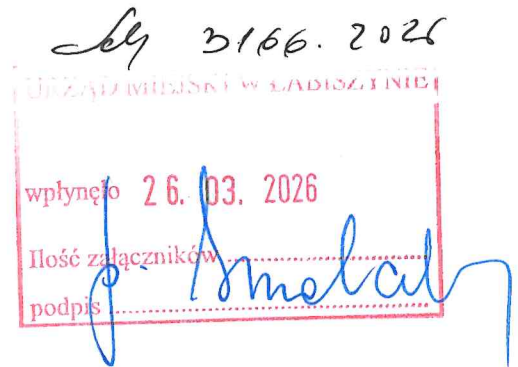 3166. 2026
URZĄD MIEJSKI W ŁABISZYNIE
wpłynęło 26. 03. 2026
Ilość załączników ..............................
podpis ..............................